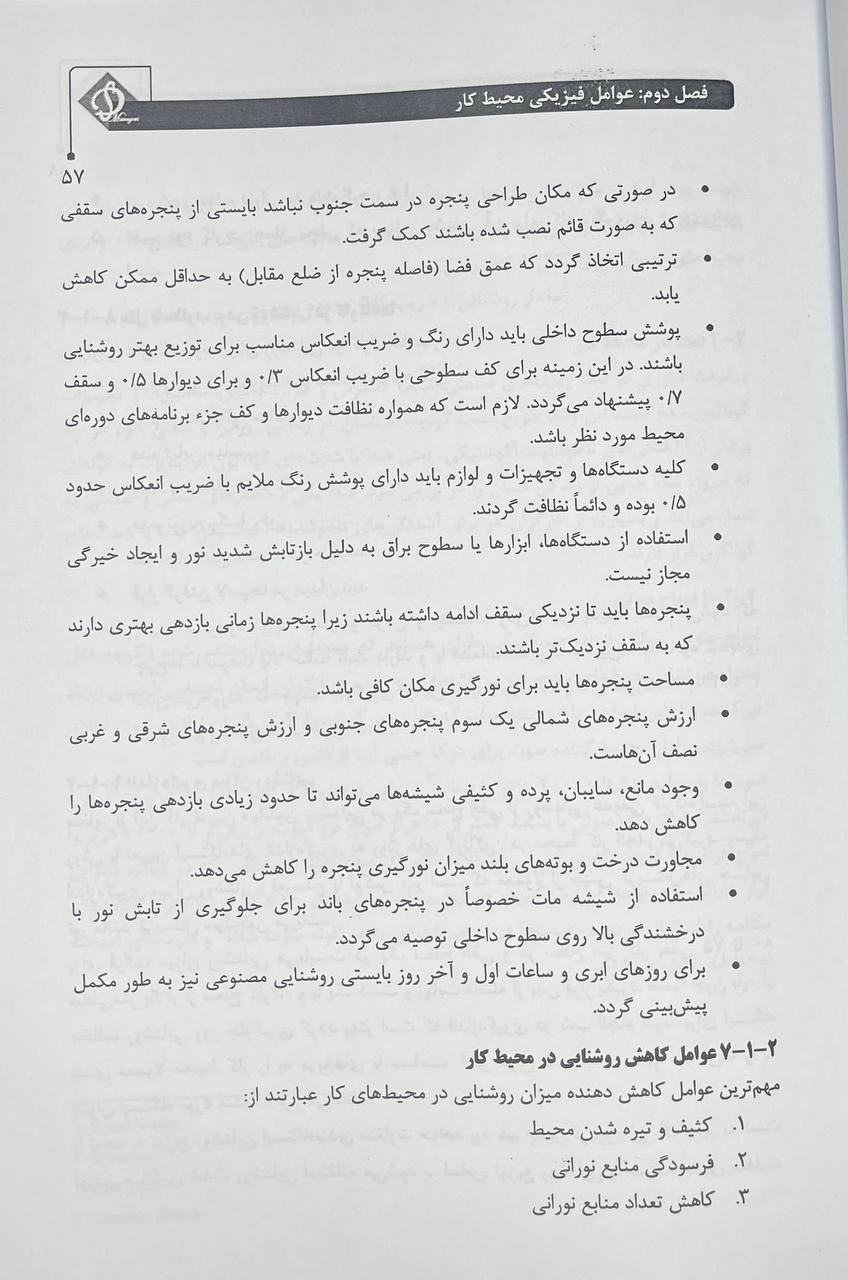 فصل دوم: عوامل فیزیکی محیط کار
۵۷
• در صورتی که مکان طراحی پنجره در سمت جنوب نباشد بایستی از پنجره‌های سقفی
که به صورت قائم نصب شده باشند کمک گرفت.
• ترتیبی اتخاذ گردد که عمق فضا (فاصله پنجره از ضلع مقابل) به حداقل ممکن کاهش
یابد.
• پوشش سطوح داخلی باید دارای رنگ و ضریب انعکاس مناسب برای توزیع بهتر روشنایی
باشند. در این زمینه برای کف سطوحی با ضریب انعکاس ۰/۳ و برای دیوارها ۰/۵ و سقف
۰/۷ پیشنهاد می‌گردد. لازم است که همواره نظافت دیوارها و کف جزء برنامه‌های دوره‌ای
محیط مورد نظر باشد.
• کلیه دستگاه‌ها و تجهیزات و لوازم باید دارای پوشش رنگ ملایم با ضریب انعکاس حدود
۰/۵ بوده و دائماً نظافت گردند.
• استفاده از دستگاه‌ها، ابزارها یا سطوح براق به دلیل بازتابش شدید نور و ایجاد خیرگی
مجاز نیست.
• پنجره‌ها باید تا نزدیکی سقف ادامه داشته باشند زیرا پنجره‌ها زمانی بازدهی بهتری دارند
که به سقف نزدیک‌تر باشند.
• مساحت پنجره‌ها باید برای نورگیری مکان کافی باشد.
• ارزش پنجره‌های شمالی یک سوم پنجره‌های جنوبی و ارزش پنجره‌های شرقی و غربی
نصف آن‌هاست.
• وجود مانع، سایبان، پرده و کثیفی شیشه‌ها می‌تواند تا حدود زیادی بازدهی پنجره‌ها را
کاهش دهد.
• مجاورت درخت و بوته‌های بلند میزان نورگیری پنجره را کاهش می‌دهد.
• استفاده از شیشه مات خصوصاً در پنجره‌های باند برای جلوگیری از تابش نور با
درخشندگی بالا روی سطوح داخلی توصیه می‌گردد.
• برای روزهای ابری و ساعات اول و آخر روز بایستی روشنایی مصنوعی نیز به طور مکمل
پیش‌بینی گردد.
۲-۱-۷ عوامل کاهش روشنایی در محیط کار
مهم‌ترین عوامل کاهش دهنده میزان روشنایی در محیط‌های کار عبارتند از:
۱. کثیف و تیره شدن محیط
۲. فرسودگی منابع نورانی
۳. کاهش تعداد منابع نورانی